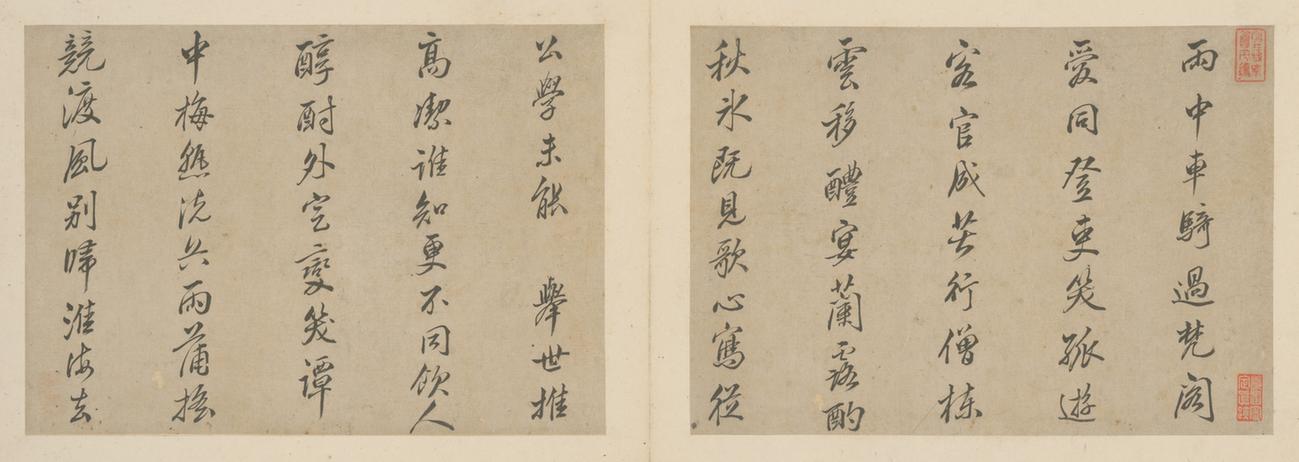 雨中車騎過梵閣
愛同登吏笑孤遊
客官成苦行僧棟
雲移醴宴蘭露酌
秋氷既見歌心寫從
公學未能 舉世推
高潔誰知更不同飲人
醇酎外定變笑譚
中梅熟洗兵雨蒲搖
競渡風別歸淮海去